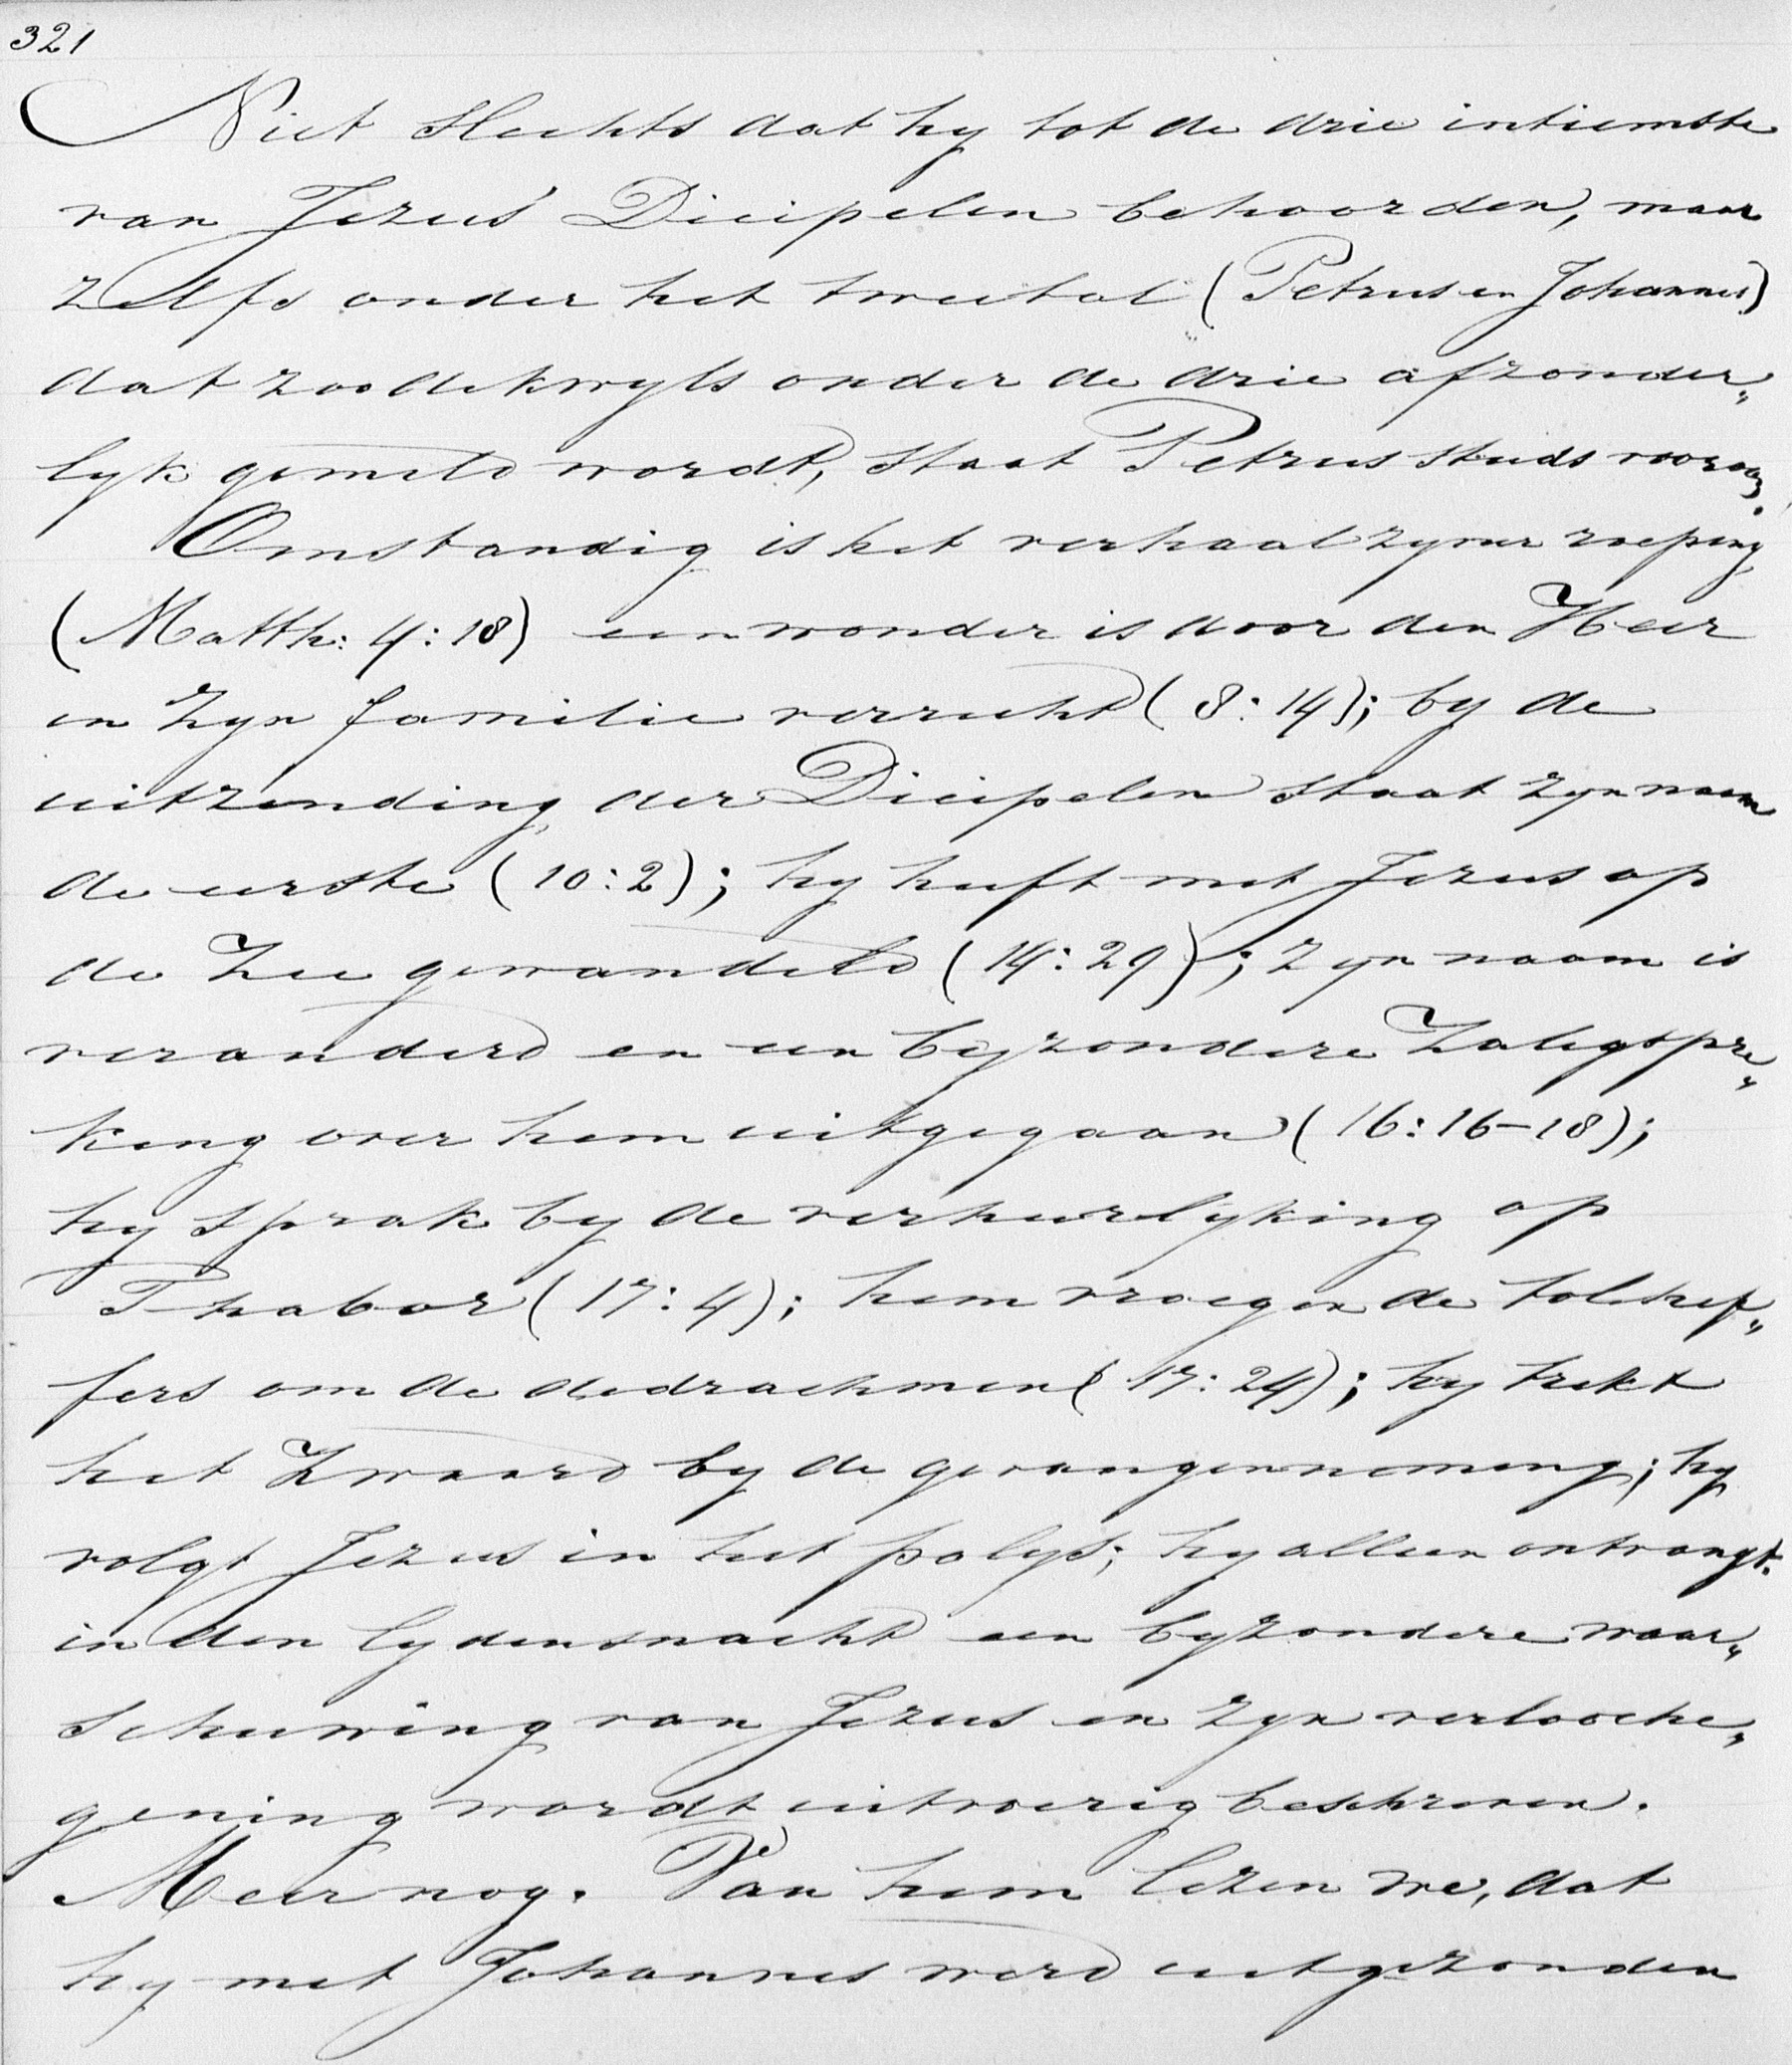 321
Niet slechts dat hy tot de drie intiemste
van Jezus' Dicipelen behoorden, maar
zelfs onder het tweetal (Petrus en Johannes)
dat zoo dikwyls onder de drie afzonder„
lyk gemeld wordt, staat Petrus steeds vooraan.
Omstandig is het verhaal zyner roeping
(Matth: 4:18) een wonder is door den Heer
in zyn familie verricht (8:14); by de
uitzending der Dicipelen staat zyn naam
de eerste (10:2); hy heeft met Jezus op
de Zee gewandeld (14:29); zyn naam is
veranderd en een byzondere Zaligspre„
king over hem uitgegaan (16:16-18);
hy sprak by de verheerlyking op
Thabor (17:4); hem vroegen de tolhef„
fers om de didrachmen (17:24); hy trekt
het Zwaard by de gevangenneming; hy
volgt Jezus in het palys; hy alleen ontvangt.
in den lydensnacht een byzondere waar„
schuwing van Jezus en zyn verlooche„
gening wordt uitvoerig beschreven.
Meer nog. Van hem lezen we, dat
hy met Johannes werd uitgezonden